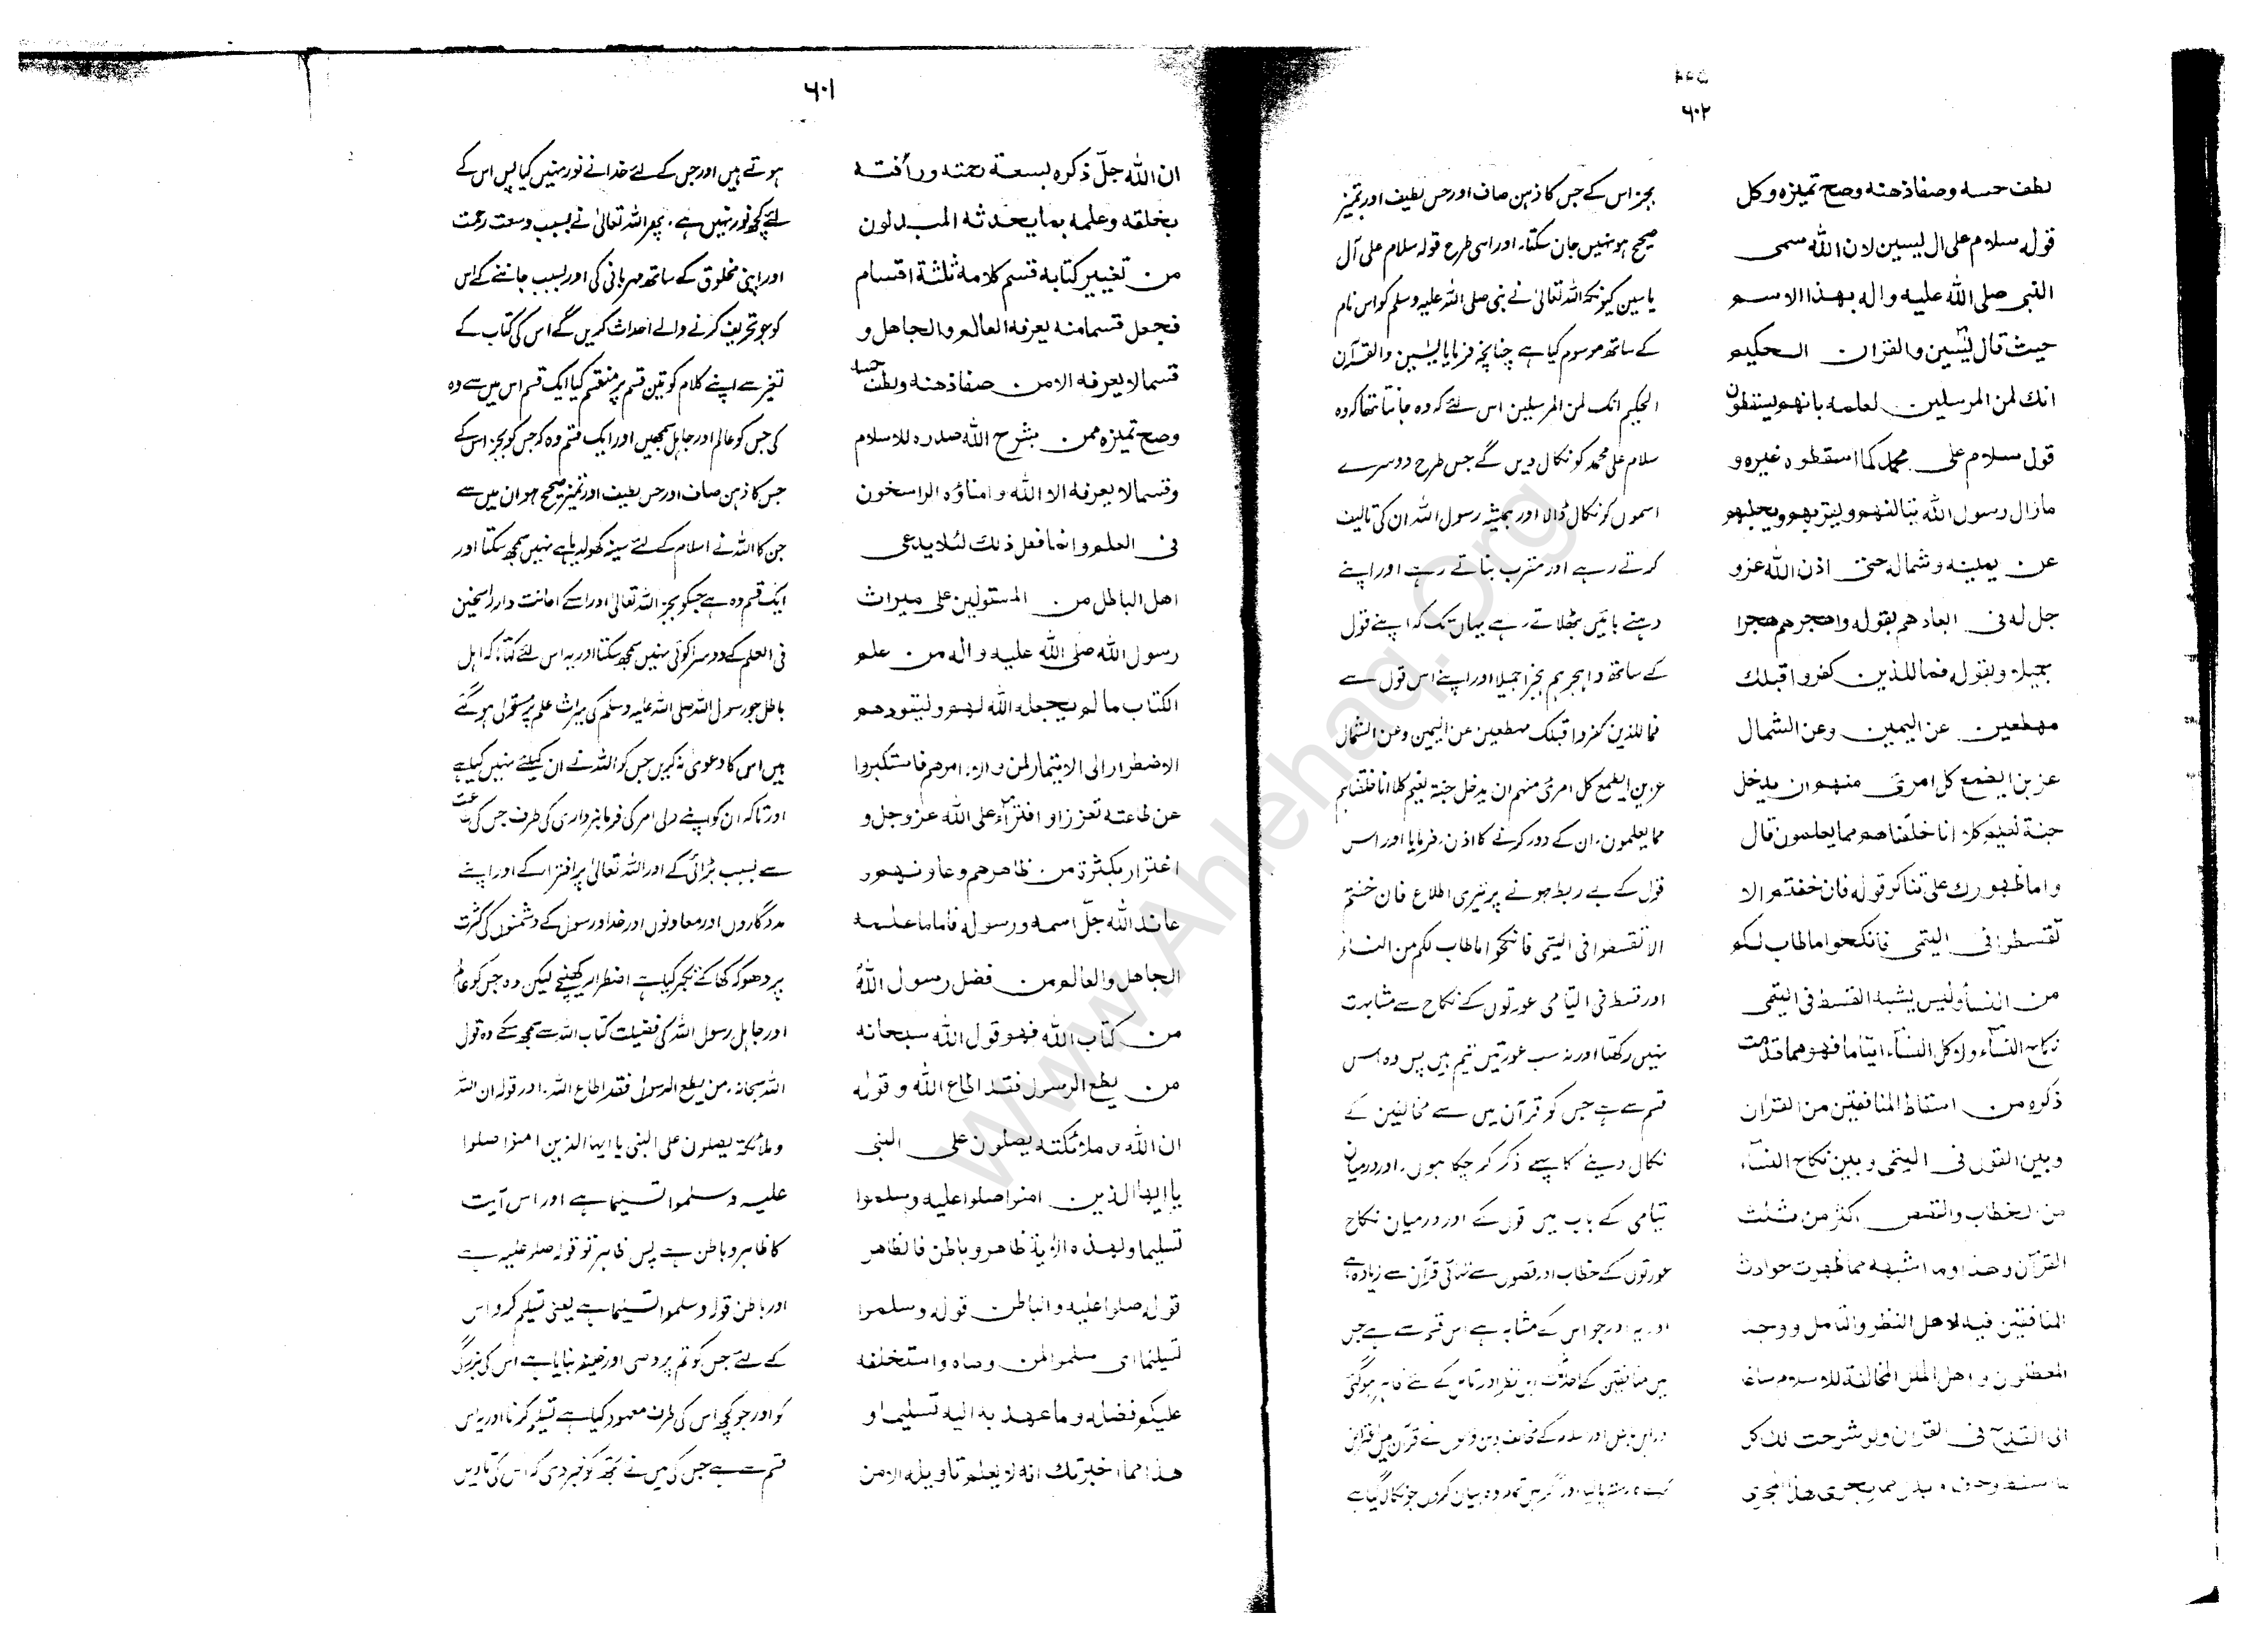 ٦٠١
ان الله جلّ ذكره بسعة رحمته ورأفته
بخلقه وعلمه بما يحدثه المبدلون
من تغيير كتابه قسم كلامه ثلثة اقسام
فجعل قسما منه يعرفه العالم والجاهل و
قسما لا يعرفه الا من صفا ذهنه ولطف حسه
وصح تميزه ممن شرح الله صدره للاسلام
وقسما لا يعرفه الا الله و امناؤه الراسخون
فى العلم وانما فعل ذلك لئلا يدعى
اهل الباطل من المستولين على ميراث
رسول الله صلى الله عليه واله من علم
الكتاب ما لم يجعله الله لهم وليقودهم
الاضطرار الى الايتمار لمن ولاه امرهم فاستكبروا
عن طاعته تعززا و افتراء على الله عز وجل و
اغترار بكثرة من ظاهرهم وعاونهم و
عاند الله جلّ اسمه ورسوله فاما ما علمه
الجاهل والعالم من فضل رسول اللهؐ
من كتاب الله فهو قول الله سبحانه
من يطع الرسول فقد اطاع الله و قوله
ان الله و ملائكته يصلون على النبى
يا ايها الذين امنوا صلوا عليه وسلموا
تسليما ولهذه الآية ظاهر و باطن فالظاهر
قوله صلوا عليه والباطن قوله وسلموا
تسليما اى سلموا لمن وصاه و استخلفه
عليكم فضله وما عهد به اليه تسليما و
هذا مما اخبرتك انه لا يعلم تاويله الا من
ہوتے ہیں اور جس کے لئے خدا نے نور نہیں کیا پس اس کے
لئے کچھ نور نہیں ہے، پھر اللہ تعالیٰ نے بسبب وسعت رحمت
اور اپنی مخلوق کے ساتھ مہربانی کی اور بسبب جاننے کے اس
کو جو تحریف کرنے والے احداث کریں گے اس کی کتاب کے
تغیر سے اپنے کلام کو تین قسم پر منقسم کیا ایک قسم اس میں سے وہ
کی جس کو عالم اور جاہل سمجھیں اور ایک قسم وہ کہ جس کو بجز اس کے
جس کا ذہن صاف اور حس لطیف اور تمیز صحیح ہو ان میں سے
جن کا اللہ نے اسلام کے لئے سینہ کھول دیا ہے نہیں سمجھ سکتا اور
ایک قسم وہ ہے جسکو بجز اللہ تعالیٰ اور اسکے امانت دار راسخین
فی العلم کے دوسرا کوئی نہیں سمجھ سکتا اور یہ اس لئے کیا کہ اہل
باطل جو رسول اللہ صلی اللہ علیہ وسلم کی میراث علم پر مستولی ہو گئے
ہیں اس کا دعویٰ نہ کریں جس کو اللہ نے ان کیلئے نہیں کیا ہے
اور تاکہ ان کو اپنے ولی امر کی فرمانبرداری کی طرف جس کی
سے بسبب بڑائی کے اور اللہ تعالیٰ پر افترا کے اور اپنے
مددگاروں اور معاونوں اور خدا و رسول کے دشمنوں کی کثرت
پر دھوکہ کھا کے تکبر کیا ہے اضطرار کھینچے لیکن وہ جس کو عالم
اور جاہل رسول اللہ کی فضیلت کتاب اللہ سے سمجھ سکے وہ قول
اللہ سبحانہ، من یطع الرسول فقد اطاع اللہ، اور قولہ ان اللہ
وملائکتہ یصلون علی النبی یا ایہا الذین امنوا صلوا
علیہ وسلموا تسلیما ہے اور اس آیت
کا ظاہر و باطن ہے پس ظاہر تو قولہ صلو علیہ ہے
اور باطن قولہ وسلموا تسلیما ہے یعنی تسلیم کرو اس
کے لئے جس کو تم پر وصی اور خلیفہ بنایا ہے اس کی بزرگی
کو اور جو کچھ اس کی طرف معہود کیا ہے تسلیم کرنا اور یہ اس
قسم سے ہے جس کی میں نے تجھ کو خبر دی کہ اس کی تاویل
٦٠٢
لطف حسه وصفا ذهنه وصح تميزه وكل
قوله سلام على ال ليسين لان الله سمى
النبى صلى الله عليه واله بهذا الاسم
حيث قال يٰسين والقران الحكيم
انك لمن المرسلين لعلمه بانهم يسقطون
قول سلام على محمد كما اسقطوه غيره و
مازال رسول الله يتالفهم ويقربهم ويجلهم
عن يمينه وشماله حتى اذن الله عز و
جل له فى ابعادهم بقوله واهجرهم هجرا
جميلا وبقوله فمال الذين كفروا قبلك
مهطعين عن اليمين وعن الشمال
عزين ايطمع كل امرئ منهم ان يدخل
جنة نعيم كلا انا خلقناهم مما يعلمون قال
واما ظهورك على تناكر قوله فان خفتم الا
تقسطوا فى اليتمى فانكحوا ما طاب لكم
من النساء وليس يشبه القسط فى اليتمى
نكاح النسآء ولا كل النسآء ايتاما فهو مما قدمت
ذكره من اسقاط المنافقين من القران
وبين القول فى اليتمى وبين نكاح النسآء
من الخطاب والقصص اكثر من ثلث
القرآن وهذا وما اشبهه مما ظهرت حوادث
المنافقين فيه لاهل النظر والتامل ووجد
المعطلون و اهل الملل المخالفة للاسلام مساغا
الى القدح فى القران ولو شرحت لك كل
ما اسقط وحرف و بدل مما يجرى هذا المجرى
بجز اس کے جس کا ذہن صاف اور حس لطیف اور تمیز
صحیح ہو نہیں جان سکتا، اور اسی طرح قولہ سلام علی آل
یاسین کیونکہ اللہ تعالیٰ نے نبی صلی اللہ علیہ وسلم کو اس نام
کے ساتھ موسوم کیا ہے چنانچہ فرمایا یٰسین والقرآن
الحکیم انک لمن المرسلین اس لئے کہ وہ جانتا تھا کہ وہ
سلام علی محمد کو نکال دیں گے جس طرح دوسرے
اسموں کو نکال ڈالا اور ہمیشہ رسول اللہ ان کی تالیف
کرتے رہے اور مقرب بناتے رہے اور اپنے
دہنے بائیں بٹھلاتے رہے یہاں تک کہ اپنے قول
کے ساتھ واہجرہم ہجرا جمیلا اور اپنے اس قول سے
فمال الذین کفروا قبلک مہطعین عن الیمین وعن الشمال
عزین ایطمع کل امرئ منہم ان یدخل جنۃ نعیم کلا انا خلقناہم
مما یعلمون، ان کے دور کرنے کا اذن فرمایا اور اس
قول کے بے ربط ہونے پر تیری اطلاع فان خفتم
الا تقسطوا فی الیتمی فانکحوا ما طاب لکم من النساء
اور قسط فی الیتامی عورتوں کے نکاح سے مشابہت
نہیں رکھتا اور نہ سب عورتیں یتیم ہیں پس وہ اس
قسم سے ہے جس کو قرآن میں سے مخالفین کے
نکال دینے کا پہلے ذکر کر چکا ہوں، اور درمیان
یتامی کے باب میں قول کے اور درمیان نکاح
عورتوں کے خطاب اور قصوں سے تہائی قرآن سے زیادہ ہے
اور یہ اور جو اس کے مشابہ ہے اس قسم سے ہے جس
میں منافقین کے احداث اہل نظر اور تامل کے لئے ظاہر ہو گئی